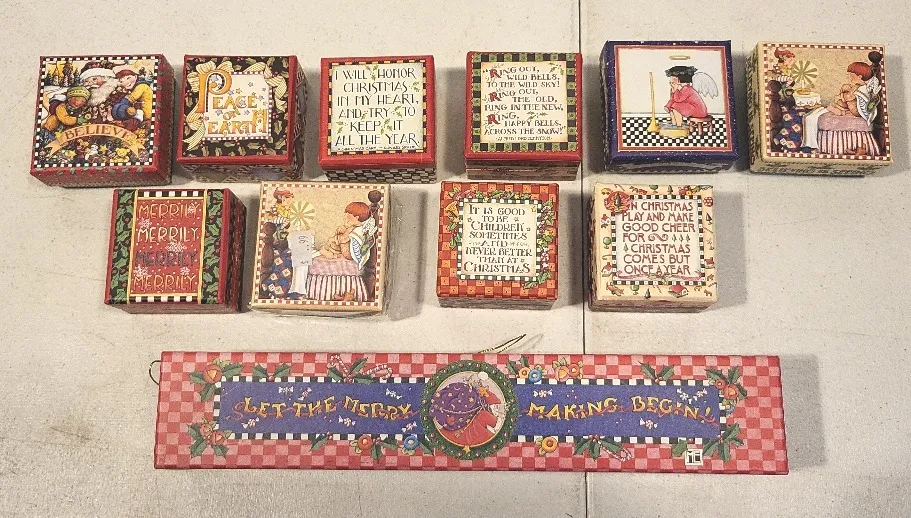 BELIEVE
PEACE
ON
EARTH
I WILL HONOR
CHRISTMAS
IN MY HEART,
AND TRY TO
KEEP IT
ALL THE YEAR.
RING OUT,
WILD BELLS,
TO THE WILD SKY!
RING OUT
THE OLD,
RING IN THE NEW,
RING,
HAPPY BELLS,
ACROSS THE SNOW!
MERRILY
MERRILY
MERRILY
MERRILY
IT IS GOOD
TO BE
CHILDREN
SOMETIMES
AND
NEVER BETTER
THAN AT
CHRISTMAS
IN CHRISTMAS
PLAY AND MAKE
GOOD CHEER
FOR
CHRISTMAS
COMES BUT
ONCE A YEAR
LET THE MERRY MAKING BEGIN!
ME